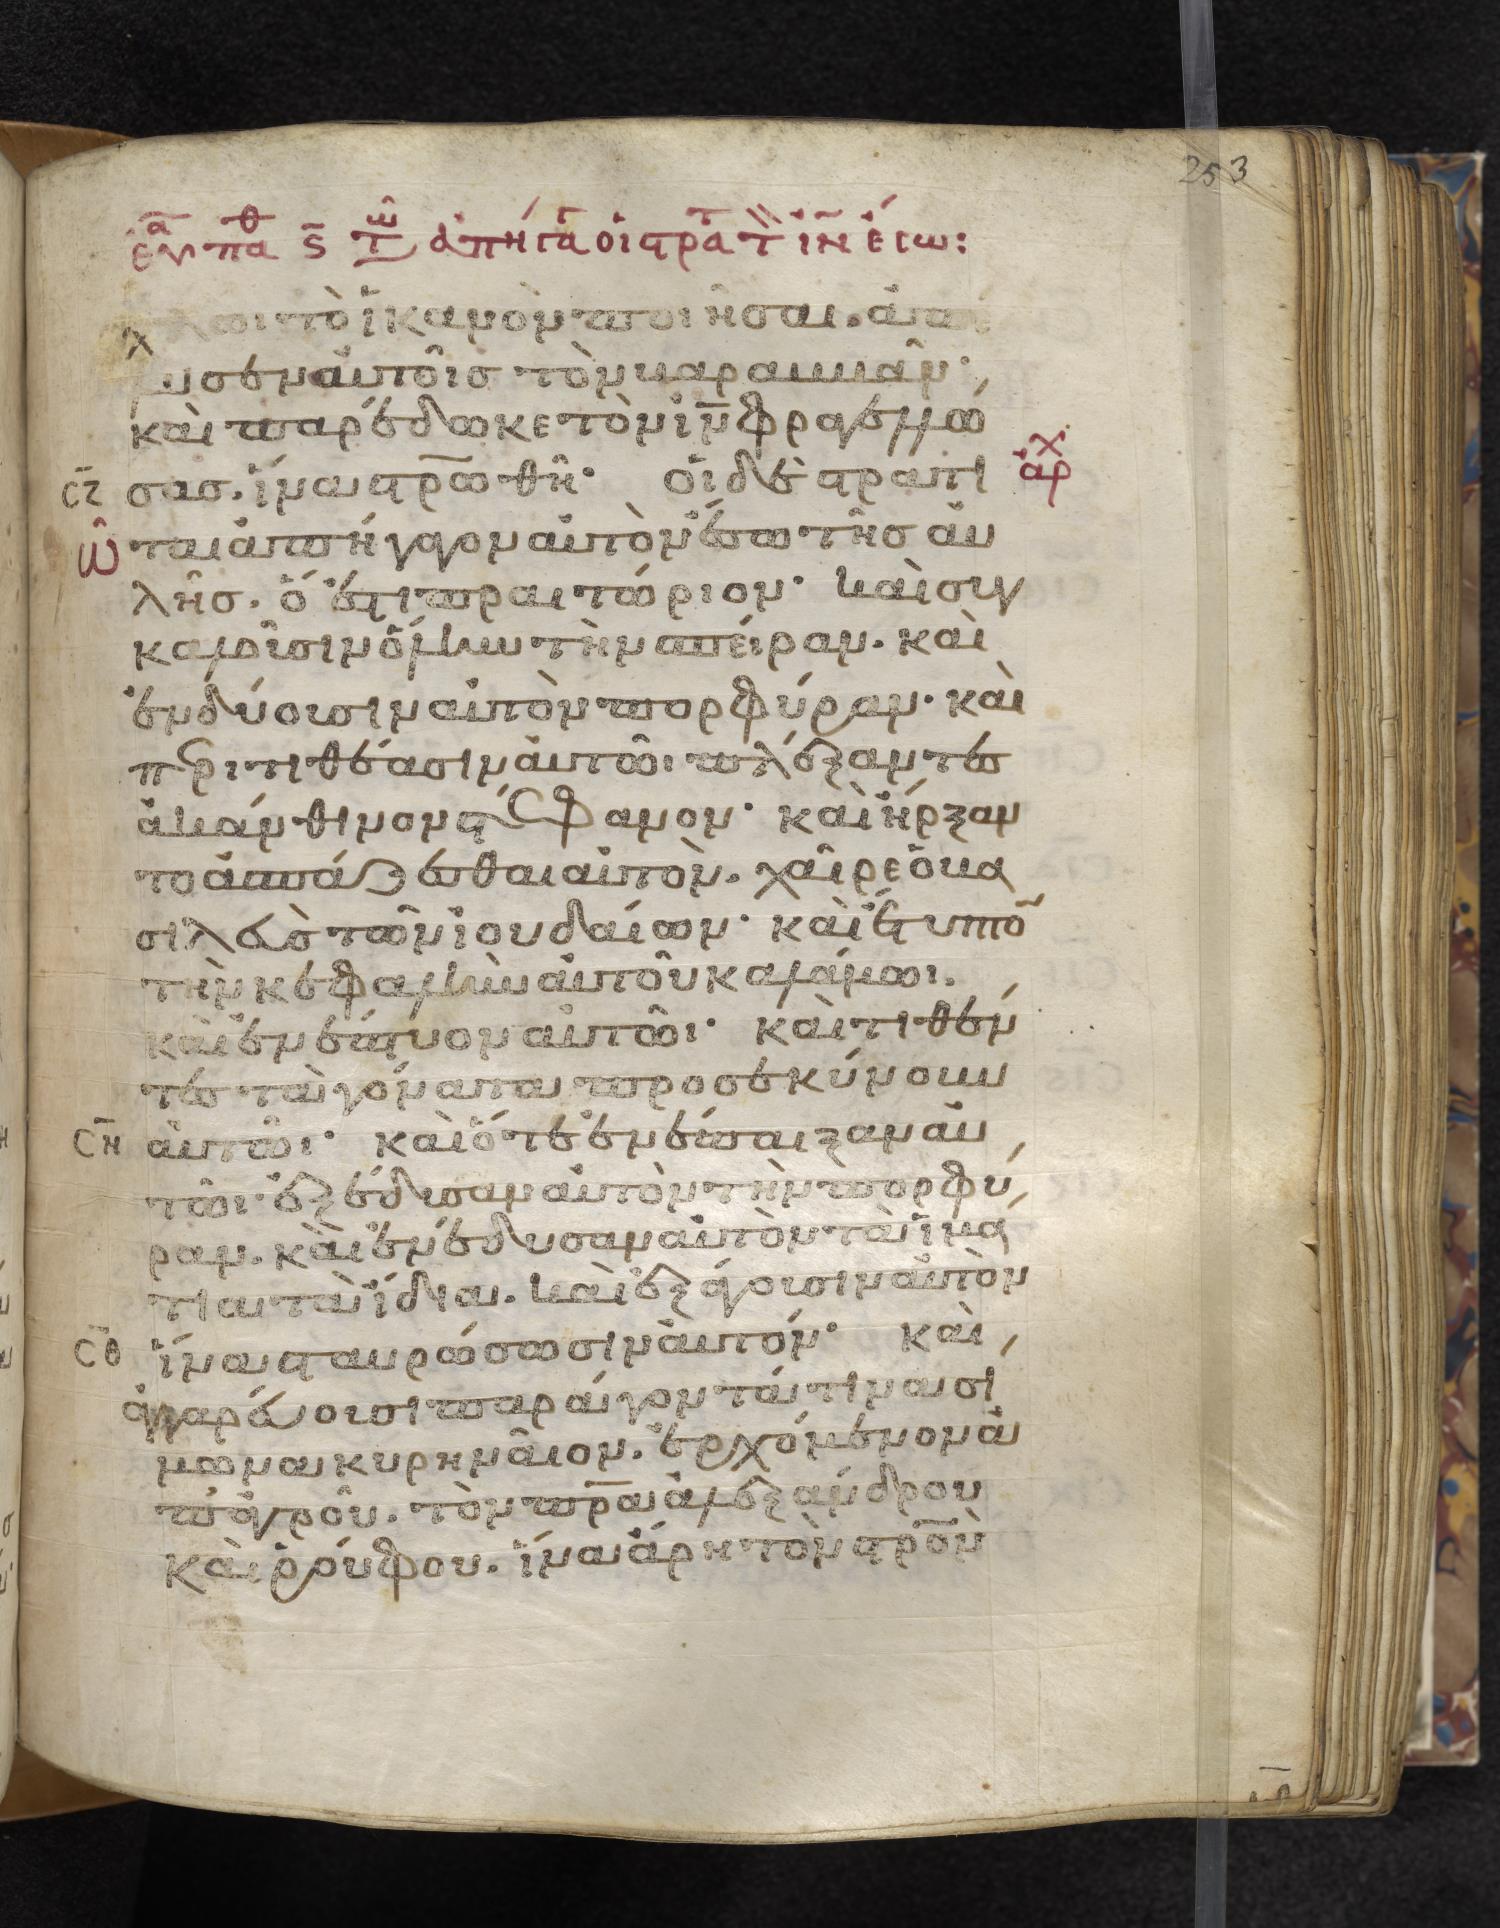 253
χλωι τὸ ἱκανὸν ποιῆσαι. ἀπέ
λυσεν αὐτοῖς τὸν βαραββᾶν·
καὶ παρέδωκε τὸν ἰν̅ φραγελλώ
σας. ἵνα στρ̅ωθῆ· οἱ δὲ στρατι
ἀρχ
σζ
ται ἀπήγαγον αὐτὸν ἔσω τῆς αὐ
λῆς. ὅ ἐστι πραιτώριον· καὶ συγ
καλοῦσιν ὅλην τὴν σπείραν. καὶ
ἐνδύουσιν αὐτὸν πορφύραν· καὶ
περιτιθέασιν αὐτῶι πλέξαντες
ἀκάνθινον στέφανον· καὶ ἤρξαν
το ἀσπάζεσθαι αὐτὸν. χαῖρε ὁ βα
σιλεὺς τῶν ἰουδαίων· καὶ ἔτυπτο̅
τὴν κεφαλὴν αὐτοῦ καλάμωι.
καὶ ἐνέπτυον αὐτῶι· καὶ τιθέν
τες τὰ γόνατα προσεκύνουν
ση αὐτῶι· καὶ ὅτε ἐνέπαιξαν αὐ
τῶι· ἐξέδυσαν αὐτὸν τὴν πορφύ
ραν. καὶ ἐνέδυσαν αὐτὸν τὰ ἱμά
τια τὰ ἴδια. καὶ ἐξάγουσιν αὐτὸν
σθ ἵνα σταυρώσωσιν αὐτόν· καὶ
ἀγγαρεύουσι παράγοντά τινα σί
μωνα κυρηναῖον. ἐρχόμενον ἀ
π᾽ ἀγροῦ. τὸν πρ̅α ἀλεξάνδρου
καὶ ῥούφου. ἵνα ἄρη τὸν στρ̅ὸν